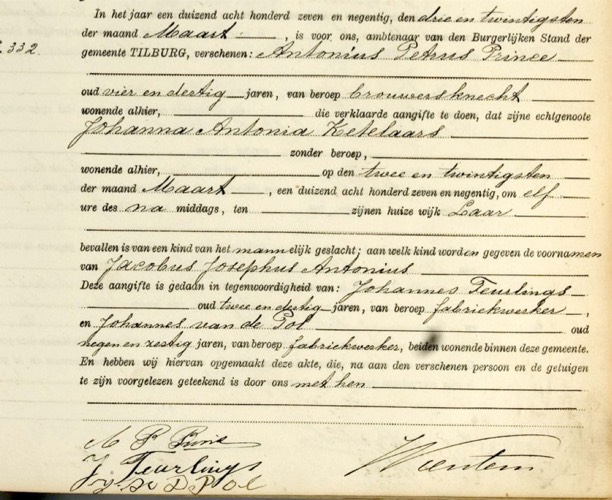 In het jaar een duizend acht honderd zeven en negentig, den drie en twintigsten
der maand Maart, is voor ons, ambtenaar van den Burgerlijken Stand der
332
gemeente TILBURG, verschenen: Antonius Petrus Prince
oud vier en dertig jaren, van beroep brouwersknecht
wonende alhier, die verklaarde aangifte te doen, dat zijne echtgenoote
Johanna Antonia Ketelaars
zonder beroep,
wonende alhier, op den twee en twintigsten
der maand Maart, een duizend acht honderd zeven en negentig, om elf
ure des na middags, ten zijnen huize wijk Laar
bevallen is van een kind van het mannelijk geslacht; aan welk kind worden gegeven de voornamen
van Jacobus Josephus Antonius
Deze aangifte is gedaan in tegenwoordigheid van: Johannes Teurlings
oud twee en dertig jaren, van beroep fabriekwerker,
en Johannes van de Pol oud
negen en zestig jaren, van beroep fabriekwerker, beiden wonende binnen deze gemeente.
En hebben wij hiervan opgemaakt deze akte, die, na aan den verschenen persoon en de getuigen
te zijn voorgelezen geteekend is door ons met hen
A P Prince
J. Teurlings
D Pol